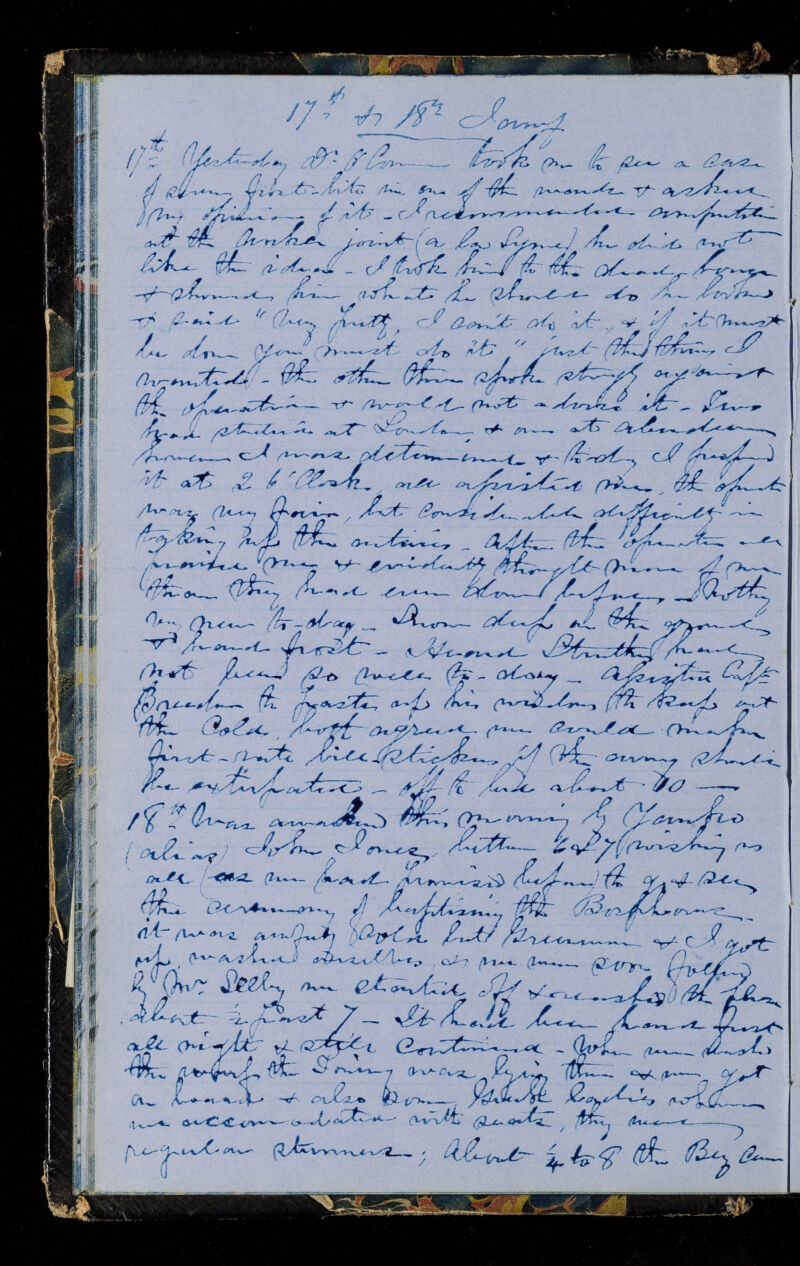 17th & 18th Jany
17th Yesterday Dr. O'Connor took me to see a case
of severe frost-bite in one of the wards & asked
my opinion of it - I recommended amputation
at the ankle joint (a la Syme) he did not
like the idea - I took him to the dead house
& showed him what he should do he looked
& said "very pretty, I can't do it, & if it must
be done you must do it" just the thing I
wanted - the other three spoke strongly against
the operation & would not advise it - Two
had studied at London & one at Aberdeen
however I was determined & to-day I performed
it at 2 O'Clock, all assisted me, the operation
was very fair, but considerable difficulty in
taking up the arteries - After the operation all
praised me & evidently thought more of me
than they had ever done before - Nothing
very new to-day - Snow deep on the ground
& hard frost - Heard Struthers had
not been so well to-day - Assisted Captn
to paste up his windows to keep out
the Cold, both agreed we could make
first-rate bill-stickers if the army should
be extirpated - off to bed about 10 -
18th Was awakened this morning by
(alias) John Jones, between 6 & 7 wishing us
all (as we had promised before) to go & see
the ceremony of baptising the Bosphorus
it was awfully cold but Greenman & I got
up, washed ourselves, & we were soon followed
by Mr Selby we started off & reached the place
about ½ past 7 - It had been hard frost
all night & still continued - When we reached
the wharf the was lying there & we got
on board & also some Greek ladies whom
we accommodated with seats, they were
regular stunners; About ¼ to 8 the Bey came